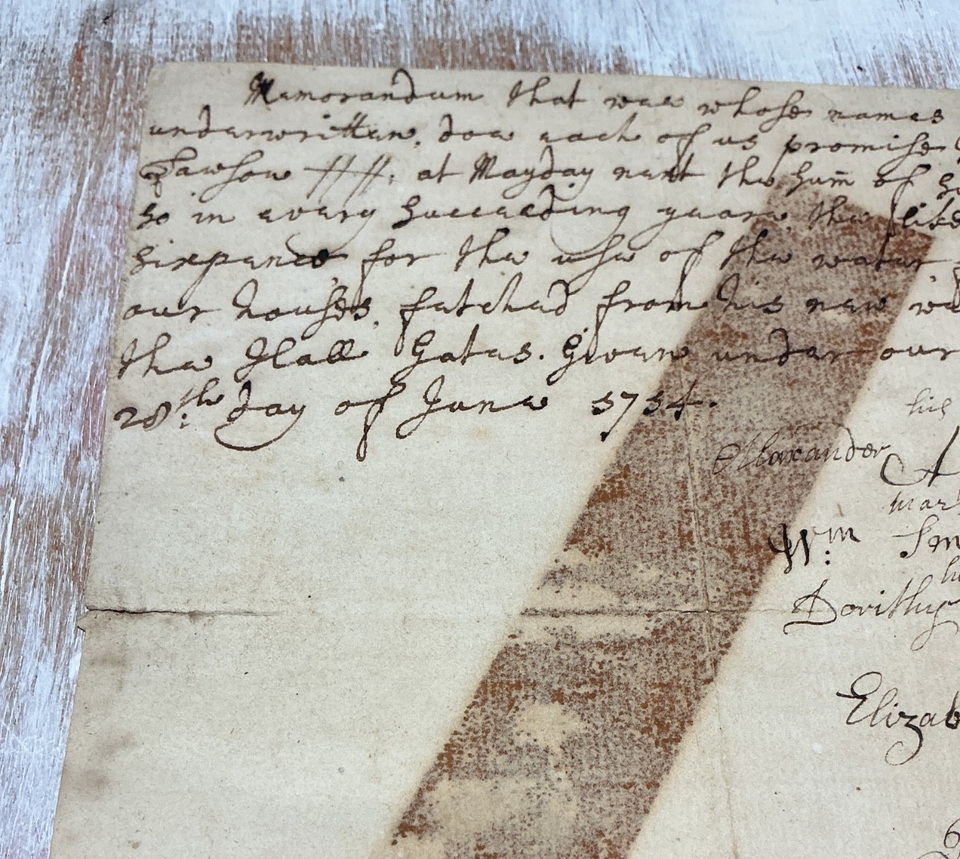 Memorandum that wee whose names
underwritten, doe each of us promise
Lawson at Mayday next the sum̄ of
so in every succeeding yeare the like
sixpence for the use of the water
our houses, fetched from his new
the Hall Gates. Given under our
28:th day of June 1734.
his
Allexander A
mark
Wm: Sm
Dorithy
Elizab